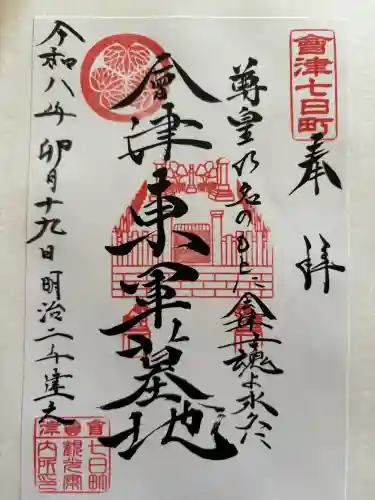 會津七日町
奉拝
尊皇の名のもとに會津魂よ永久に
會津東軍墓地
令和八年卯月十九日 明治二年建立
會津
七日町
観光案
内所印